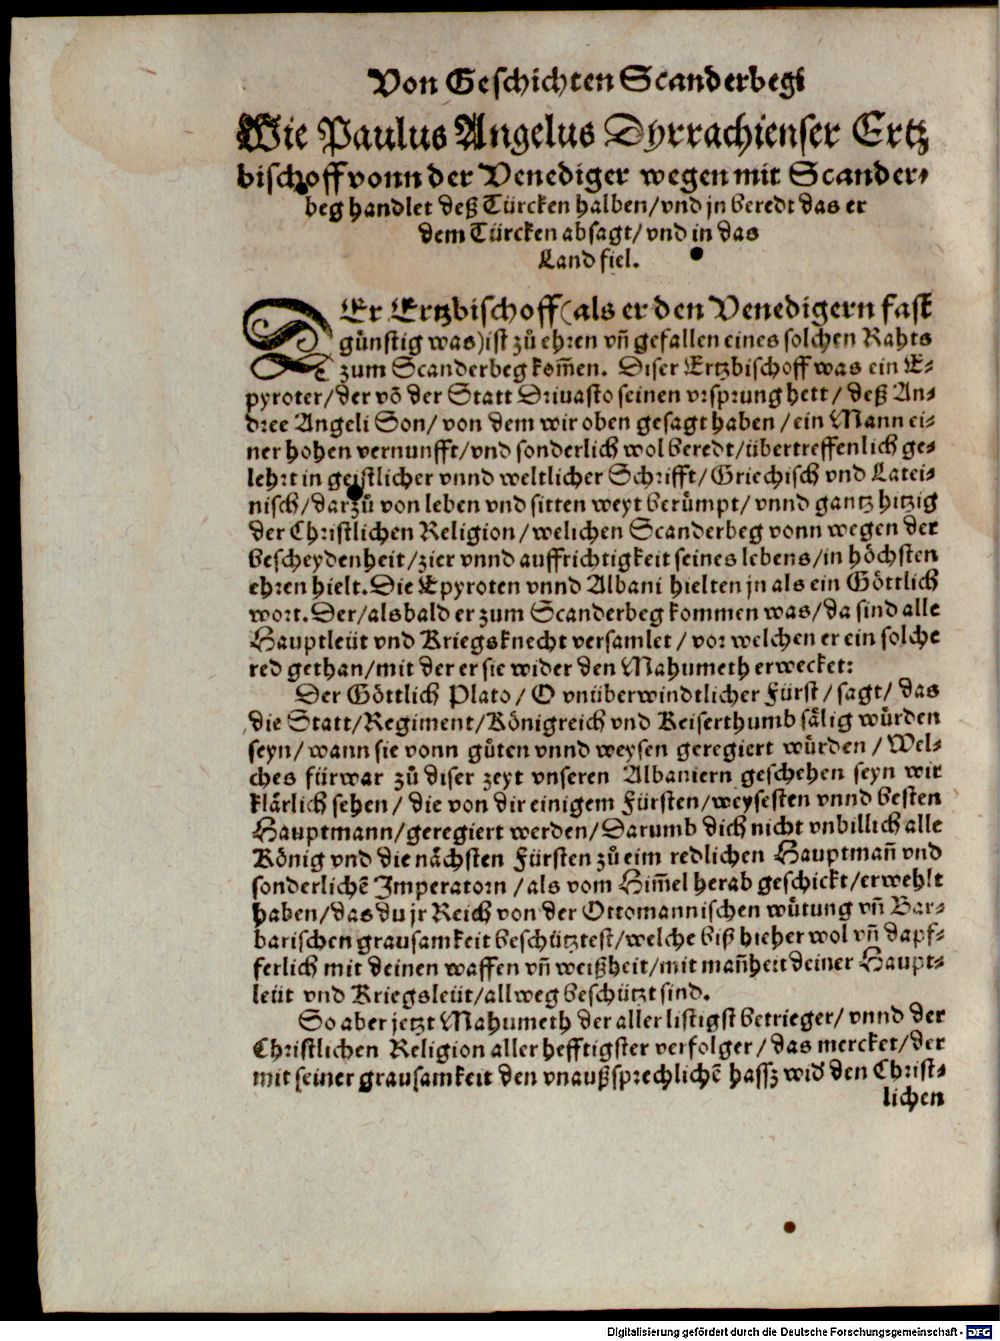 Von Geschichten Scanderbegs
Wie Paulus Angelus Dyrrachienser Ertz
bischoff vonn der Venediger wegen mit Scander-
beg handlet deß Türcken halben/vnd jn beredt das er
dem Türcken absagt/vnd in das
Land fiel.
DEr Ertzbischoff (als er den Venedigern fast
günstig was) ist zů ehren vñ gefallen eines solchen Rahts
zum Scanderbeg kom̃en. Diser Ertzbischoff was ein E-
pyroter/der võ der Statt Driuasto seinen vrsprung hett/deß An-
dree Angeli Son/von dem wir oben gesagt haben/ein Mann ei-
ner hohen vernunfft/vnd sonderlich wol beredt/übertreffenlich ge-
lehrt in geistlicher vnnd weltlicher Schrifft/Griechisch vnd Latei-
nisch/darzů von leben vnd sitten weyt berůmpt/vnnd gantz hitzig
der Christlichen Religion/welichen Scanderbeg vonn wegen der
bescheydenheit/zier vnnd auffrichtigkeit seines lebens/in höchsten
ehren hielt. Die Epyroten vnnd Albani hielten jn als ein Göttlich
wort. Der/alsbald er zum Scanderbeg kommen was/da sind alle
Hauptleüt vnd Kriegsknecht versamlet/vor welchen er ein solche
red gethan/mit der er sie wider den Mahumeth erwecket:
Der Göttlich Plato/O vnüberwindtlicher Fürst/sagt/das
die Statt/Regiment/Königreich vnd Keiserthumb sälig würden
seyn/wann sie vonn gůten vnnd weysen geregiert würden/Wel-
ches fürwar zů diser zeyt vnseren Albaniern geschehen seyn wir
klärlich sehen/die von dir einigem Fürsten/weysesten vnnd besten
Hauptmann/geregiert werden/Darumb dich nicht vnbillich alle
König vnd die nächsten Fürsten zů eim redlichen Hauptmañ vnd
sonderlichẽ Imperatorn/als vom Him̃el herab geschickt/erwehlt
haben/das du jr Reich von der Ottomannischen wůtung vñ Bar-
barischen grausamkeit beschütztest/welche biß hieher wol vñ dapf-
ferlich mit deinen waffen vñ weißheit/mit mañheit deiner Haupt-
leüt vnd Kriegsleüt/allweg beschützt sind.
So aber jetzt Mahumeth der aller listigst betrieger/vnnd der
Christlichen Religion aller hefftigster verfolger/das mercket/der
mit seiner grausamkeit den vnaußsprechlichẽ hassz wid' den Christ-
lichen
Digitalisierung gefördert durch die Deutsche Forschungsgemeinschaft - DFG